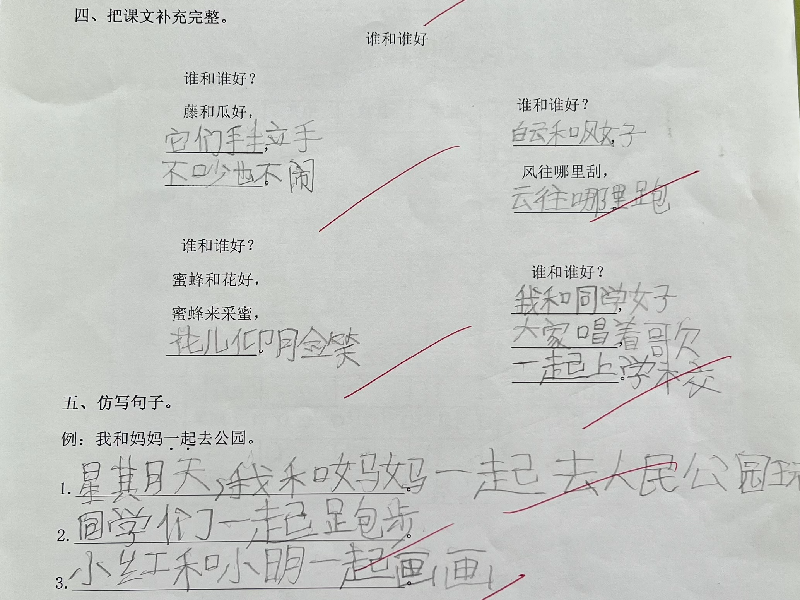 四、把课文补充完整。
谁和谁好
谁和谁好？
藤和瓜好，
它们手拉手，
不吵也不闹。
谁和谁好？
蜜蜂和花好，
蜜蜂来采蜜，
花儿仰脸笑。
谁和谁好？
白云和风好，
风往哪里刮，
云往哪里跑。
谁和谁好？
我和同学好，
大家唱着歌，
一起上学校。
五、仿写句子。
例：我和妈妈一起去公园。
1. 星其月天，我和妈妈一起去人民公园玩。
2. 同学们一起跑步。
3. 小红和小明一起画画。